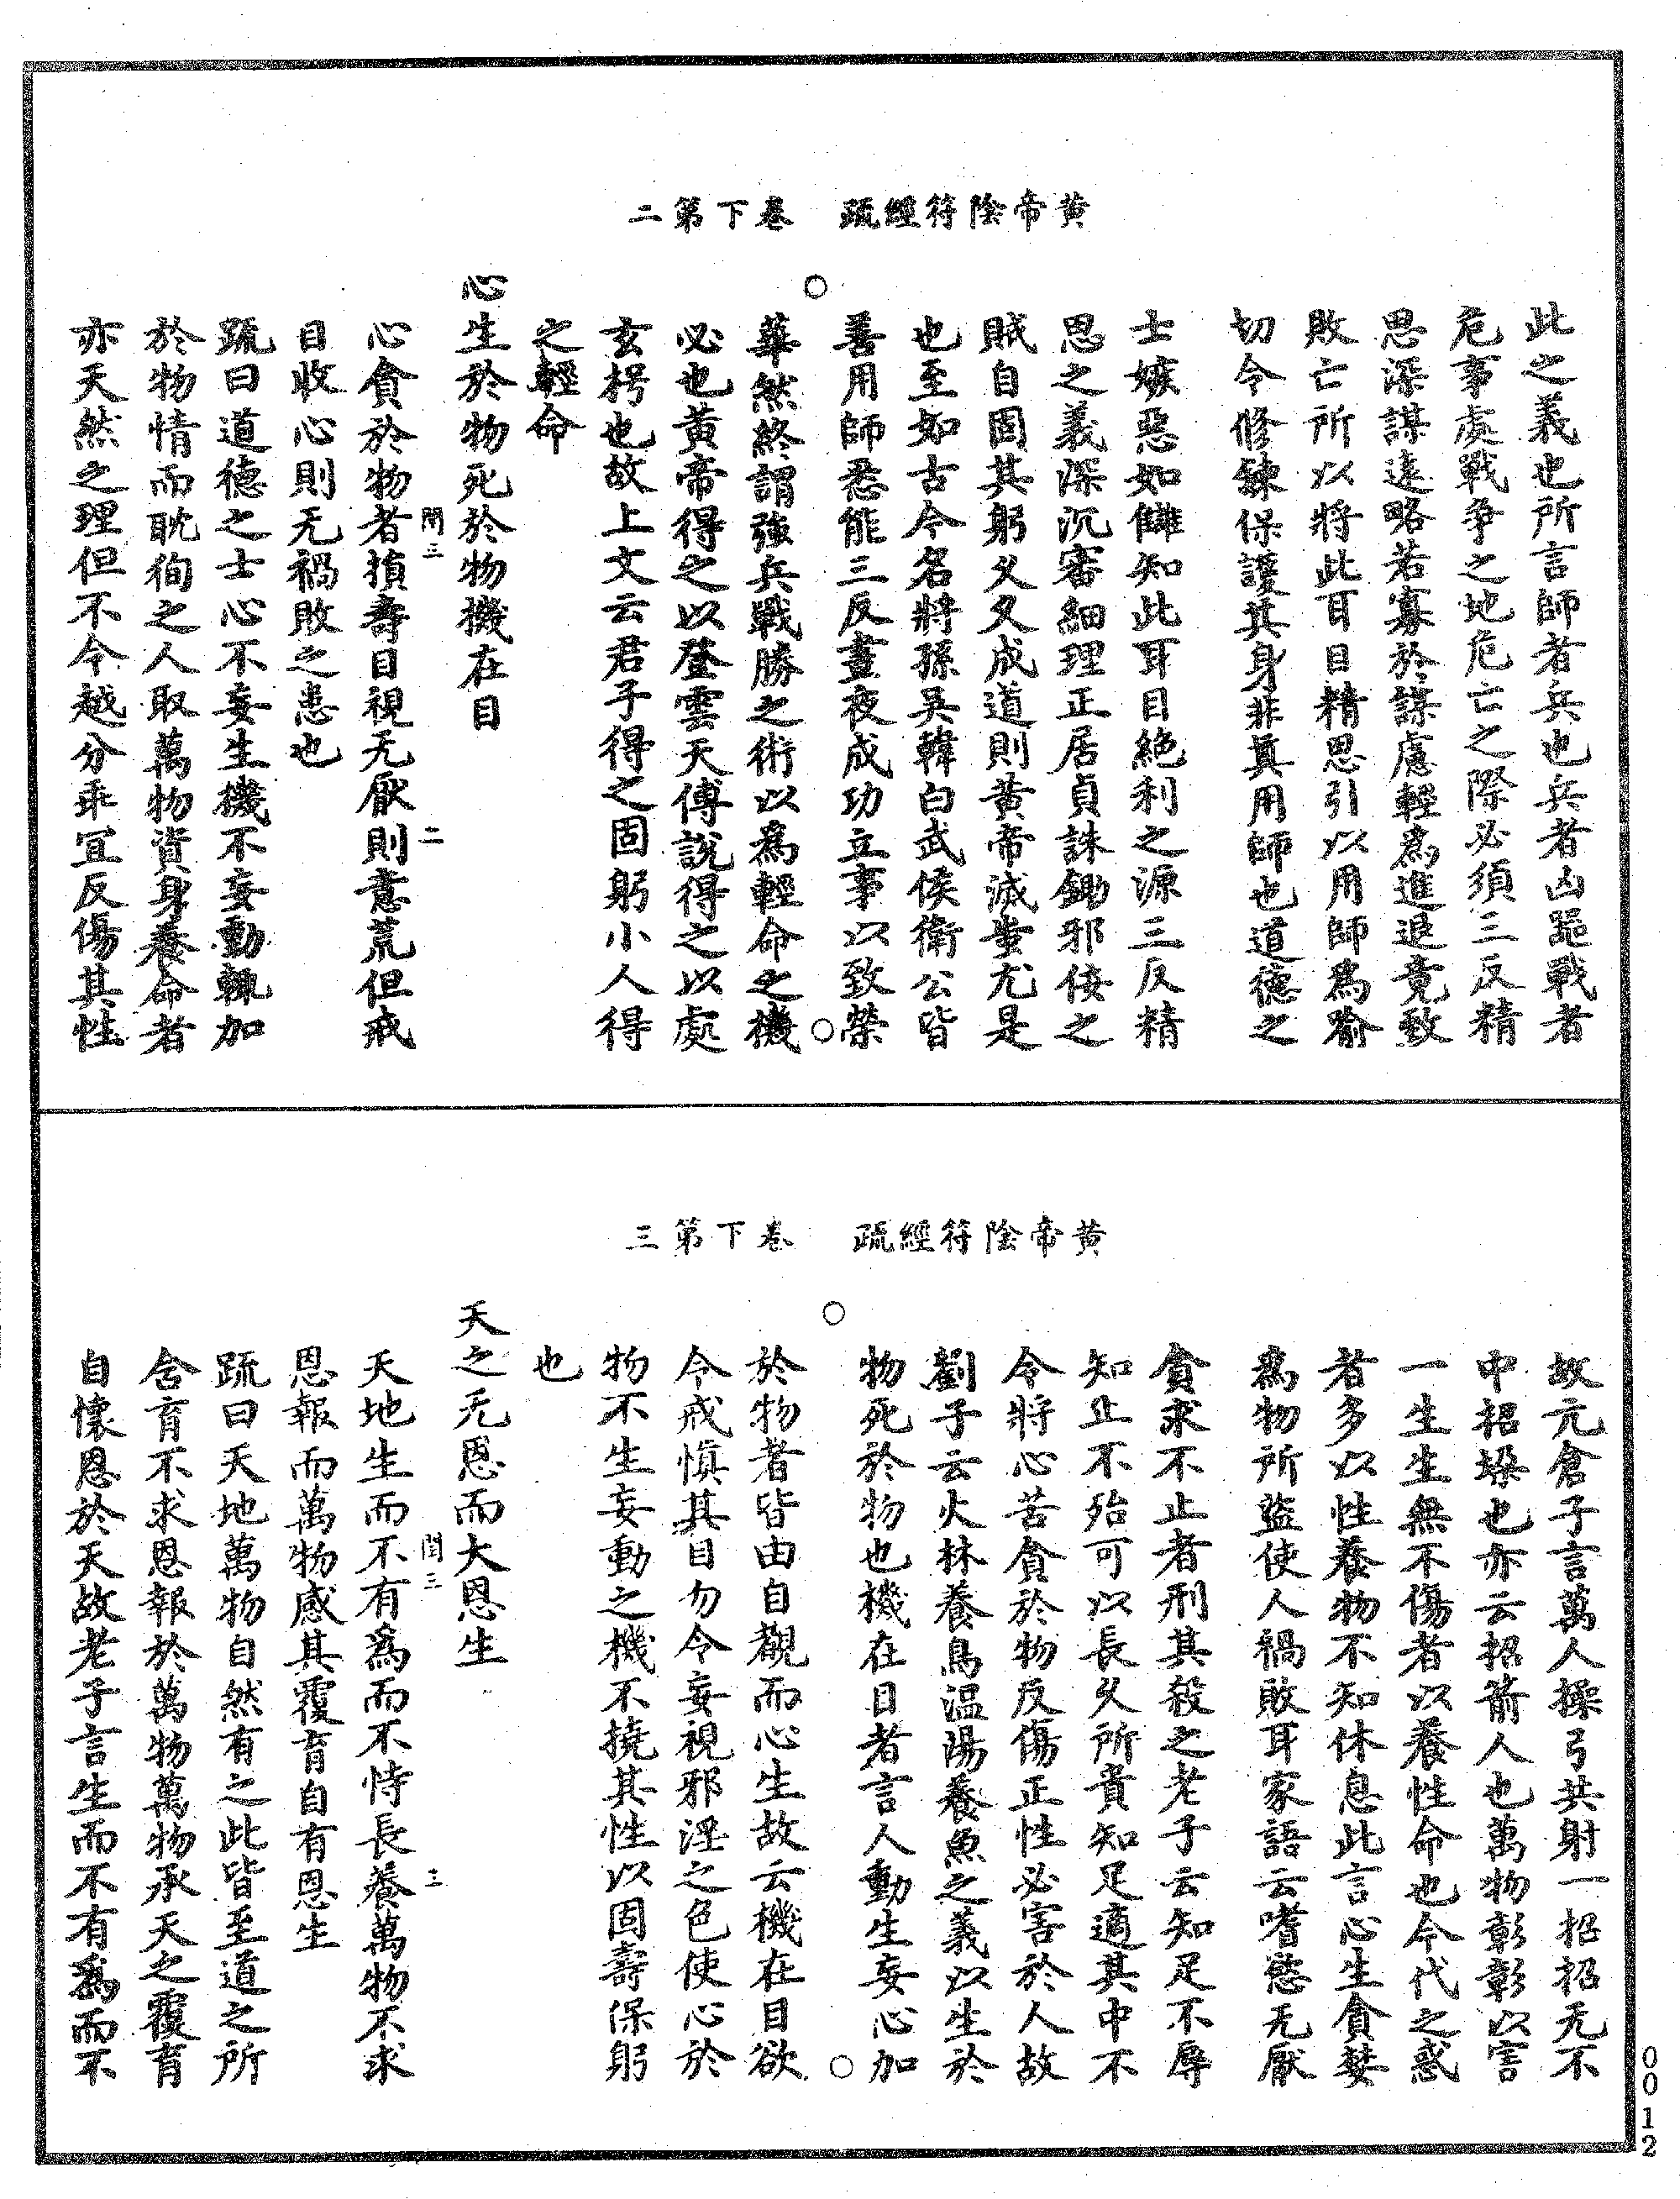 黄帝陰符經疏　卷下第二
此之義也所言師者兵也兵者凶噐戰者
危事處戰争之地危亡之際必須三反精
思深謀遠略若寡於謀慮輕爲進退竟致
敗亡所以將此耳目精思引以用師爲喻
切令修鍊保護其身非真用師也道德之
士嫉惡如讎知此耳目絶利之源三反精
思之義深沉審細理正居貞誅鋤邪佞之
賊自固其躬乆乆成道則黄帝滅蚩尤是
也至如古今名將孫吴韓白武侯衛公皆
善用師悉能三反晝夜成功立事以致榮
華然終謂強兵戰勝之術以爲輕命之機
必也黄帝得之以登雲天傅說得之以處
玄枵也故上文云君子得之固躬小人得
之輕命
心生於物死於物機在目
心貪於物者損壽目視无厭則意荒但戒
閏三　二
目收心則无禍敗之患也
疏曰道德之士心不妄生機不妄動輒加
於物情而耽徇之人取萬物資身養命者
亦天然之理但不令越分乖宜反傷其性
黄帝陰符經疏　卷下第三
故亢倉子言萬人操弓共射一招招无不
中招垜也亦云招箭人也萬物彰彰以害
一生生無不傷者以養性命也今代之惑
者多以性養物不知休息此言心生貪婪
爲物所盜使人禍敗耳家語云嗜慾无厭
貪求不止者刑其殺之老子云知足不辱
知止不殆可以長乆所貴知足適其中不
令將心苦貪於物反傷正性必害於人故
劉子云火林養鳥温陽養魚之義以生於
物死於物也機在目者言人動生妄心加
於物者皆由自觀而心生故云機在目欲
令戒愼其目勿令妄視邪淫之色使心於
物不生妄動之機不撓其性以固壽保躬
也
天之无恩而大恩生
天地生而不有爲而不恃長養萬物不求
閏三　三
恩報而萬物感其覆育自有恩生
疏曰天地萬物自然有之此皆至道之所
含育不求恩報於萬物萬物承天之覆育
自懷恩於天故老子言生而不有爲而不
0012